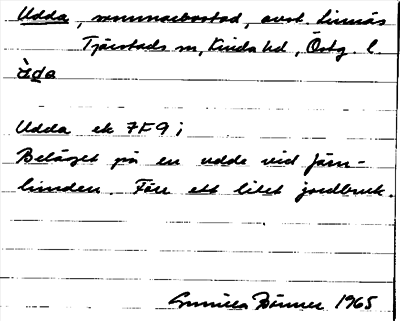 Udda, sommarbostad, avst. Linnäs
Tjärstads sn, Kinda hd, Östg. l.
ùda
Udda ek 7F9;
Beläget på en udde vid Järn-
lunden. Förr ett litet jordbruk.
Gunilla Bónner 1965